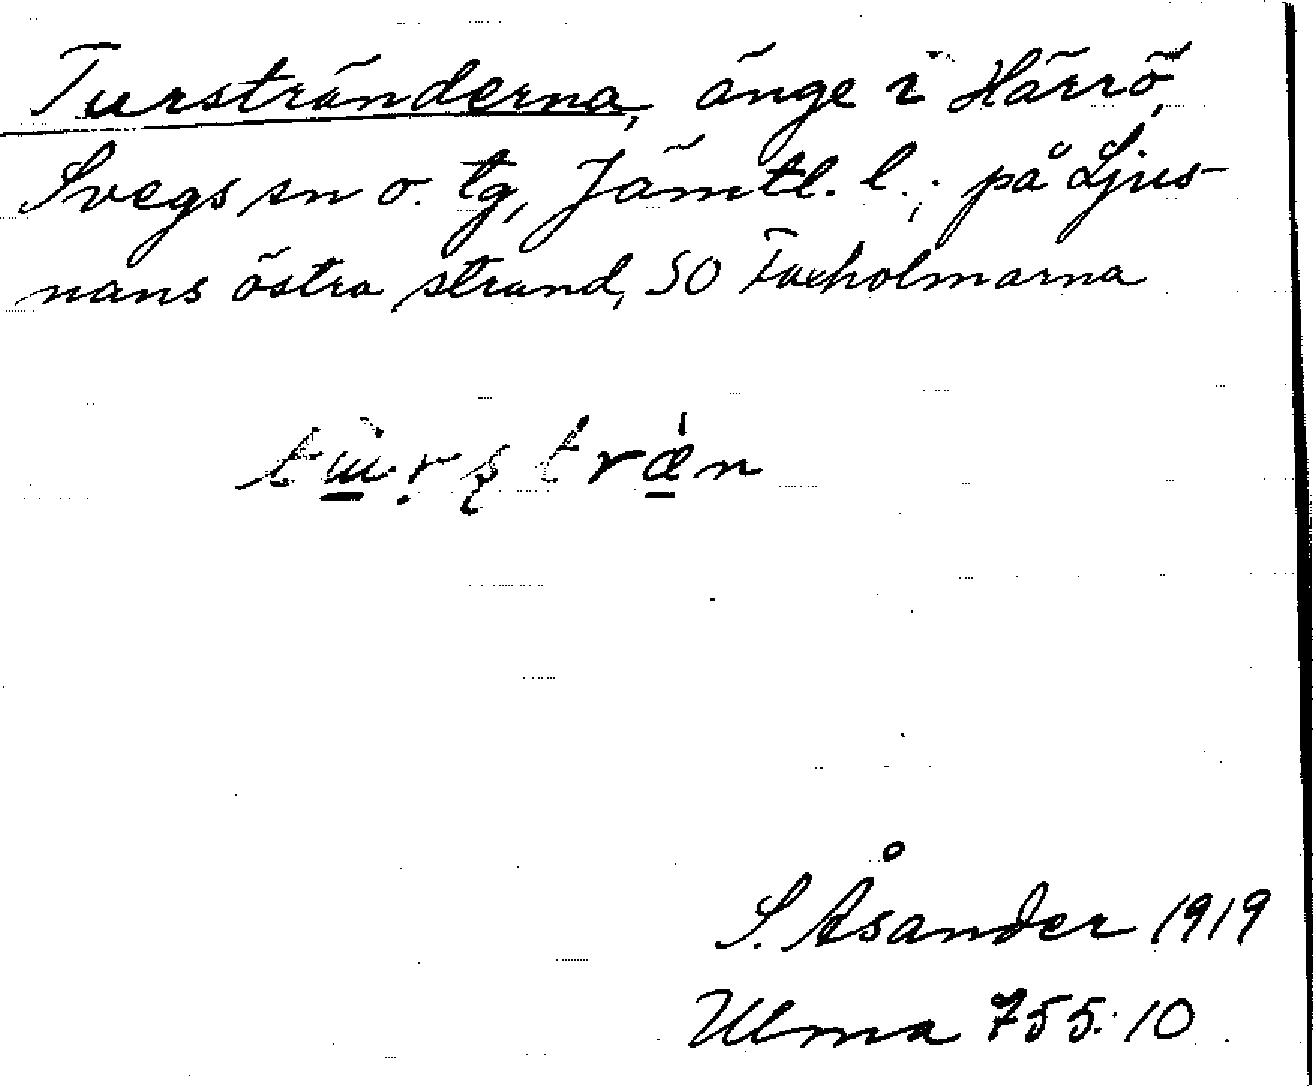 Turstränderna, änge i Härrö,
Svegs sn o. tg, Jämtl. l.; på Ljus-
nans östra strand, SO Faxholmarna
tɯ̀rʂtrǽn
S. Åsander 1919
Ulma 755:10